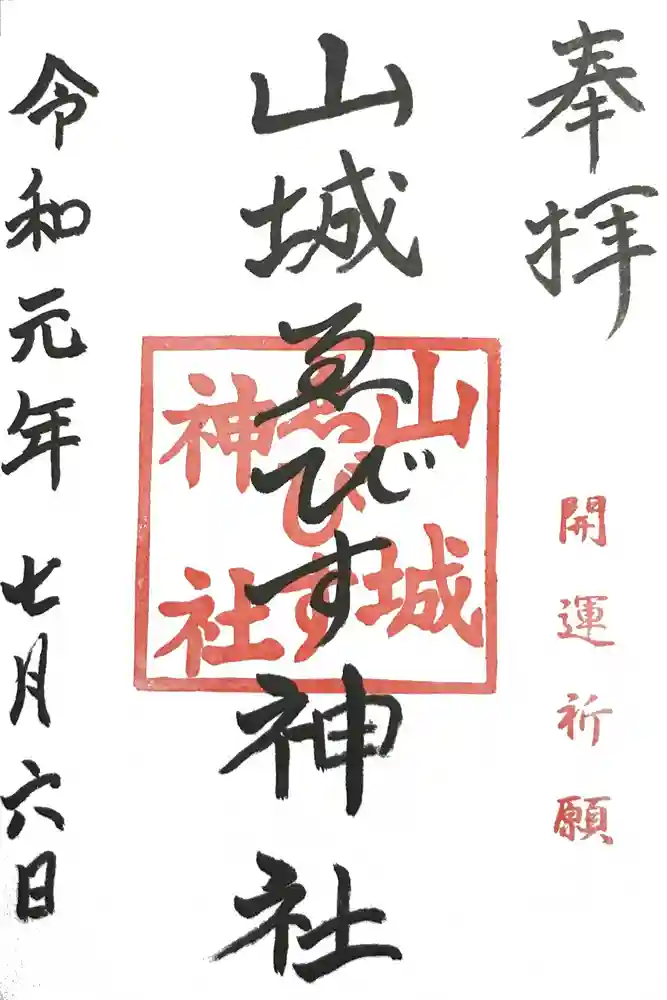 奉拝
開運祈願
山城ゑびす神社
山城
ゑびす
神社
令和元年 七月六日